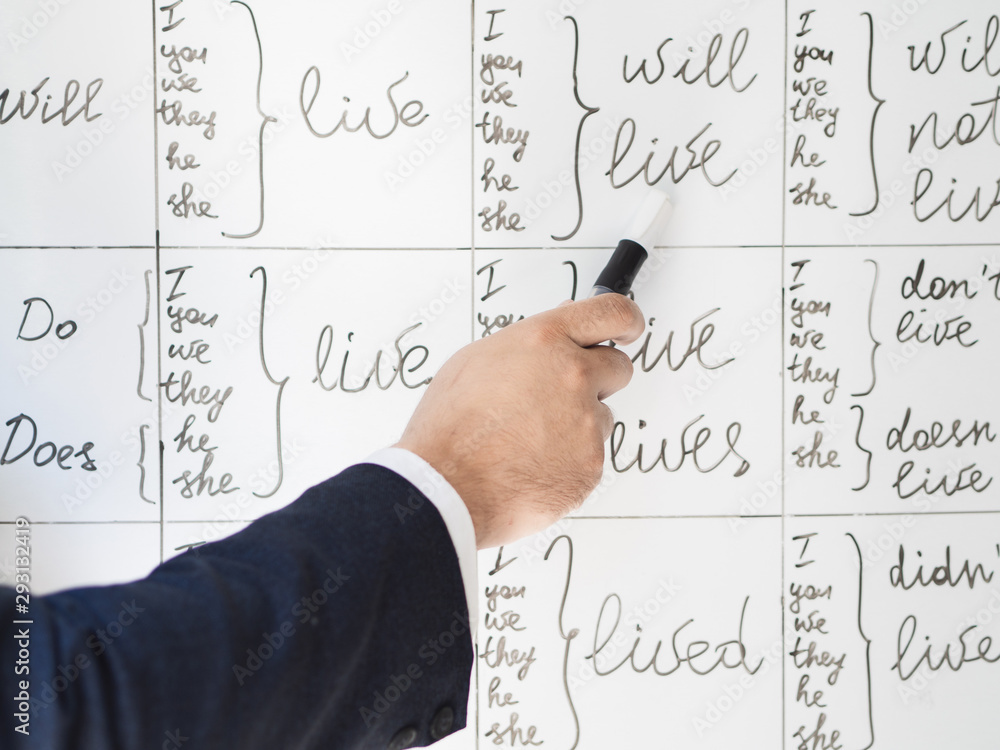 will
I
you
we
they
he
she
live
I
you
we
they
he
she
will
live
I
you
we
they
he
she
will
not
live
Do
Does
I
you
we
they
he
she
live
I
you
live
lives
I
you
we
they
he
she
don't
live
doesn
live
I
you
we
they
he
she
lived
I
you
we
they
he
she
didn'
live
Adobe Stock | #293132419